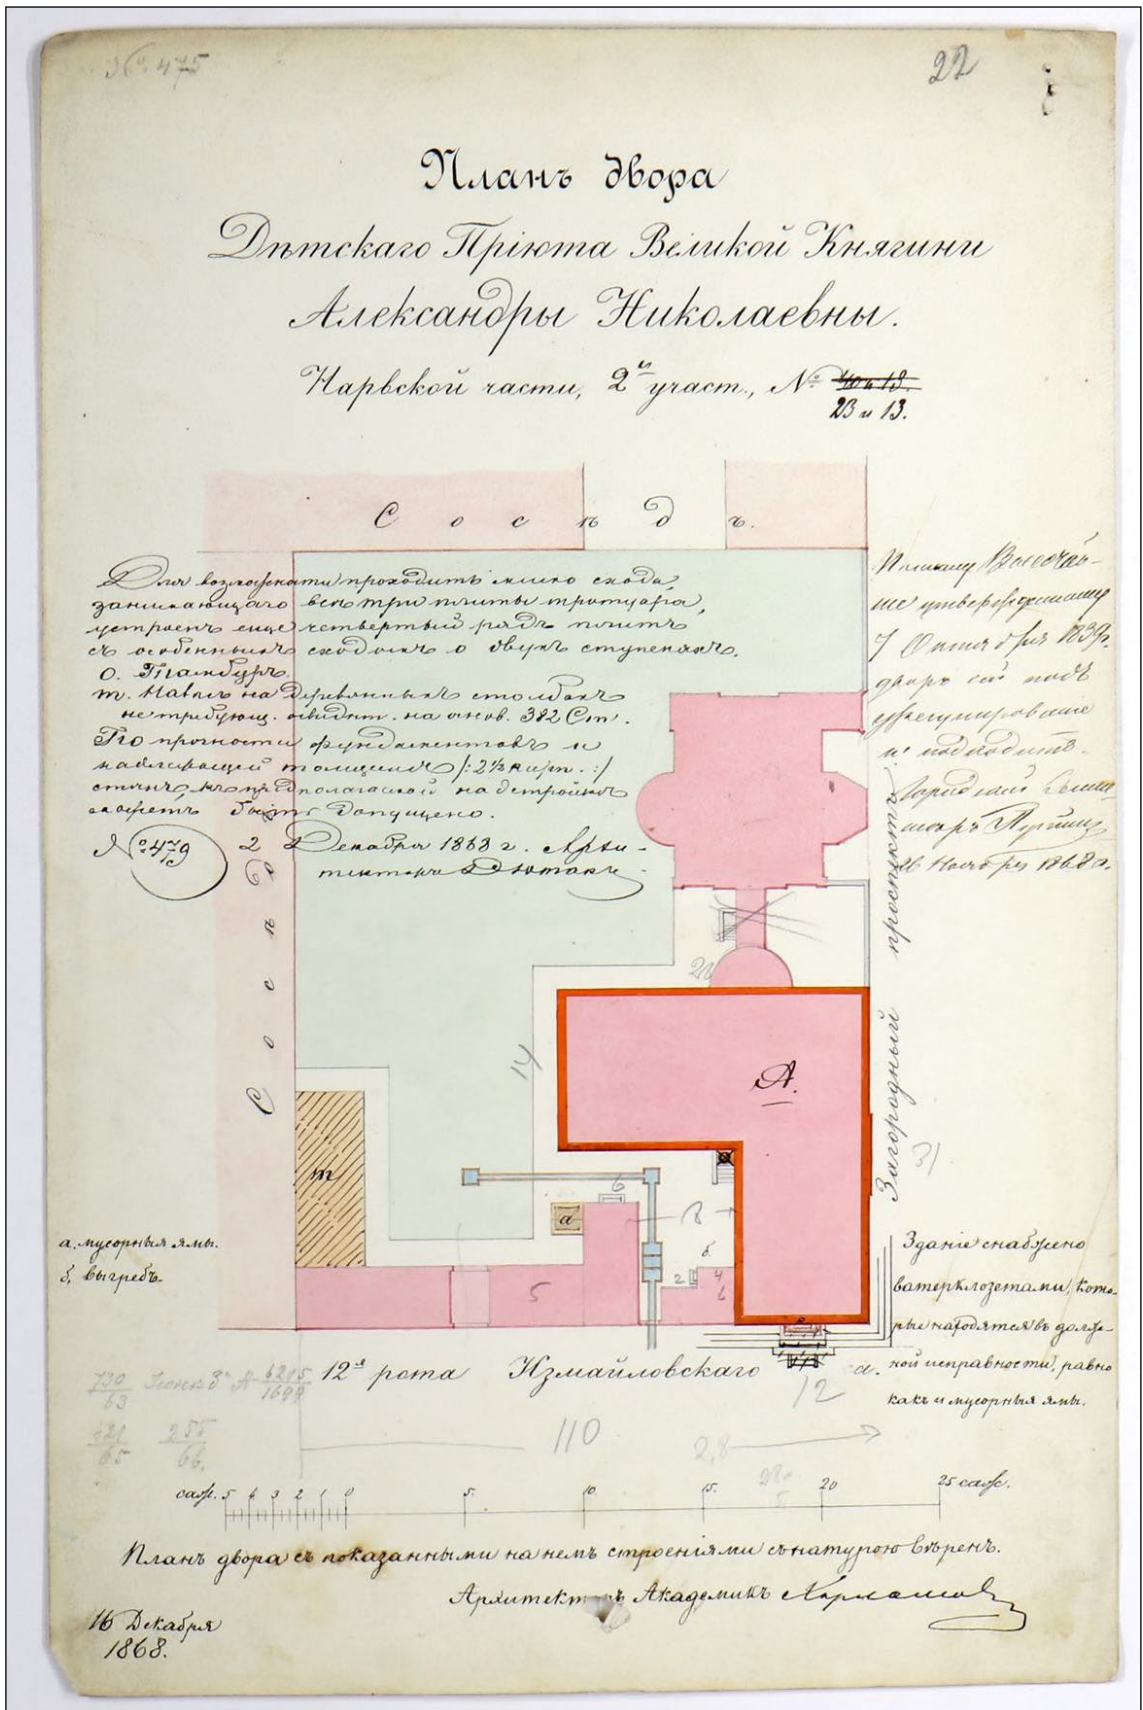 № 475
22
Планъ двора
Дѣтскаго Пріюта Великой Княгини
Александры Николаевны.
Нарвской части, 2й участ., №
23 и 13.
Сосѣдъ.
Для возможности проходить мимо схода,
занимающаго всѣ три плиты тротуара,
устроенъ еще четвертый рядъ плитъ
съ особеннымъ сходомъ о двухъ ступеняхъ.
о. Тамбуръ.
т. Навѣсъ на деревянныхъ столбахъ
не требующ. на основ. 382 Ст.
По прочности фундаментовъ и
толщинѣ /: 2½ кирп. :/
стѣнъ, къ надстройкѣ
можетъ быть допущено.
№ 479
2 Декабря 1868 г. Архи-
текторъ
По плану Высочай-
ше утвержденному
7 Октября 1839 г.
дворъ сей подъ
урегулирование
не подходитъ.
1868 г.
Сосѣдъ
Загородный проспектъ
А.
20
14
31
т
а
б
8
б.
2
4
6
5
а. мусорныя ямы.
б. выгребъ.
Зданіе снабжено
ватерклозетами, кото-
рые находятся въ долж-
ной исправности, равно
какъ и мусорныя ямы.
12я рота Измайловскаго п.
12
730
63
6215
255
66.
110
2,8
саж. 5 4 3 2 1 0 5. 10 15. 20 25 саж.
Планъ двора съ показанными на немъ строеніями съ натурою вѣренъ.
Архитекторъ Академикъ
16 Декабря
1868.